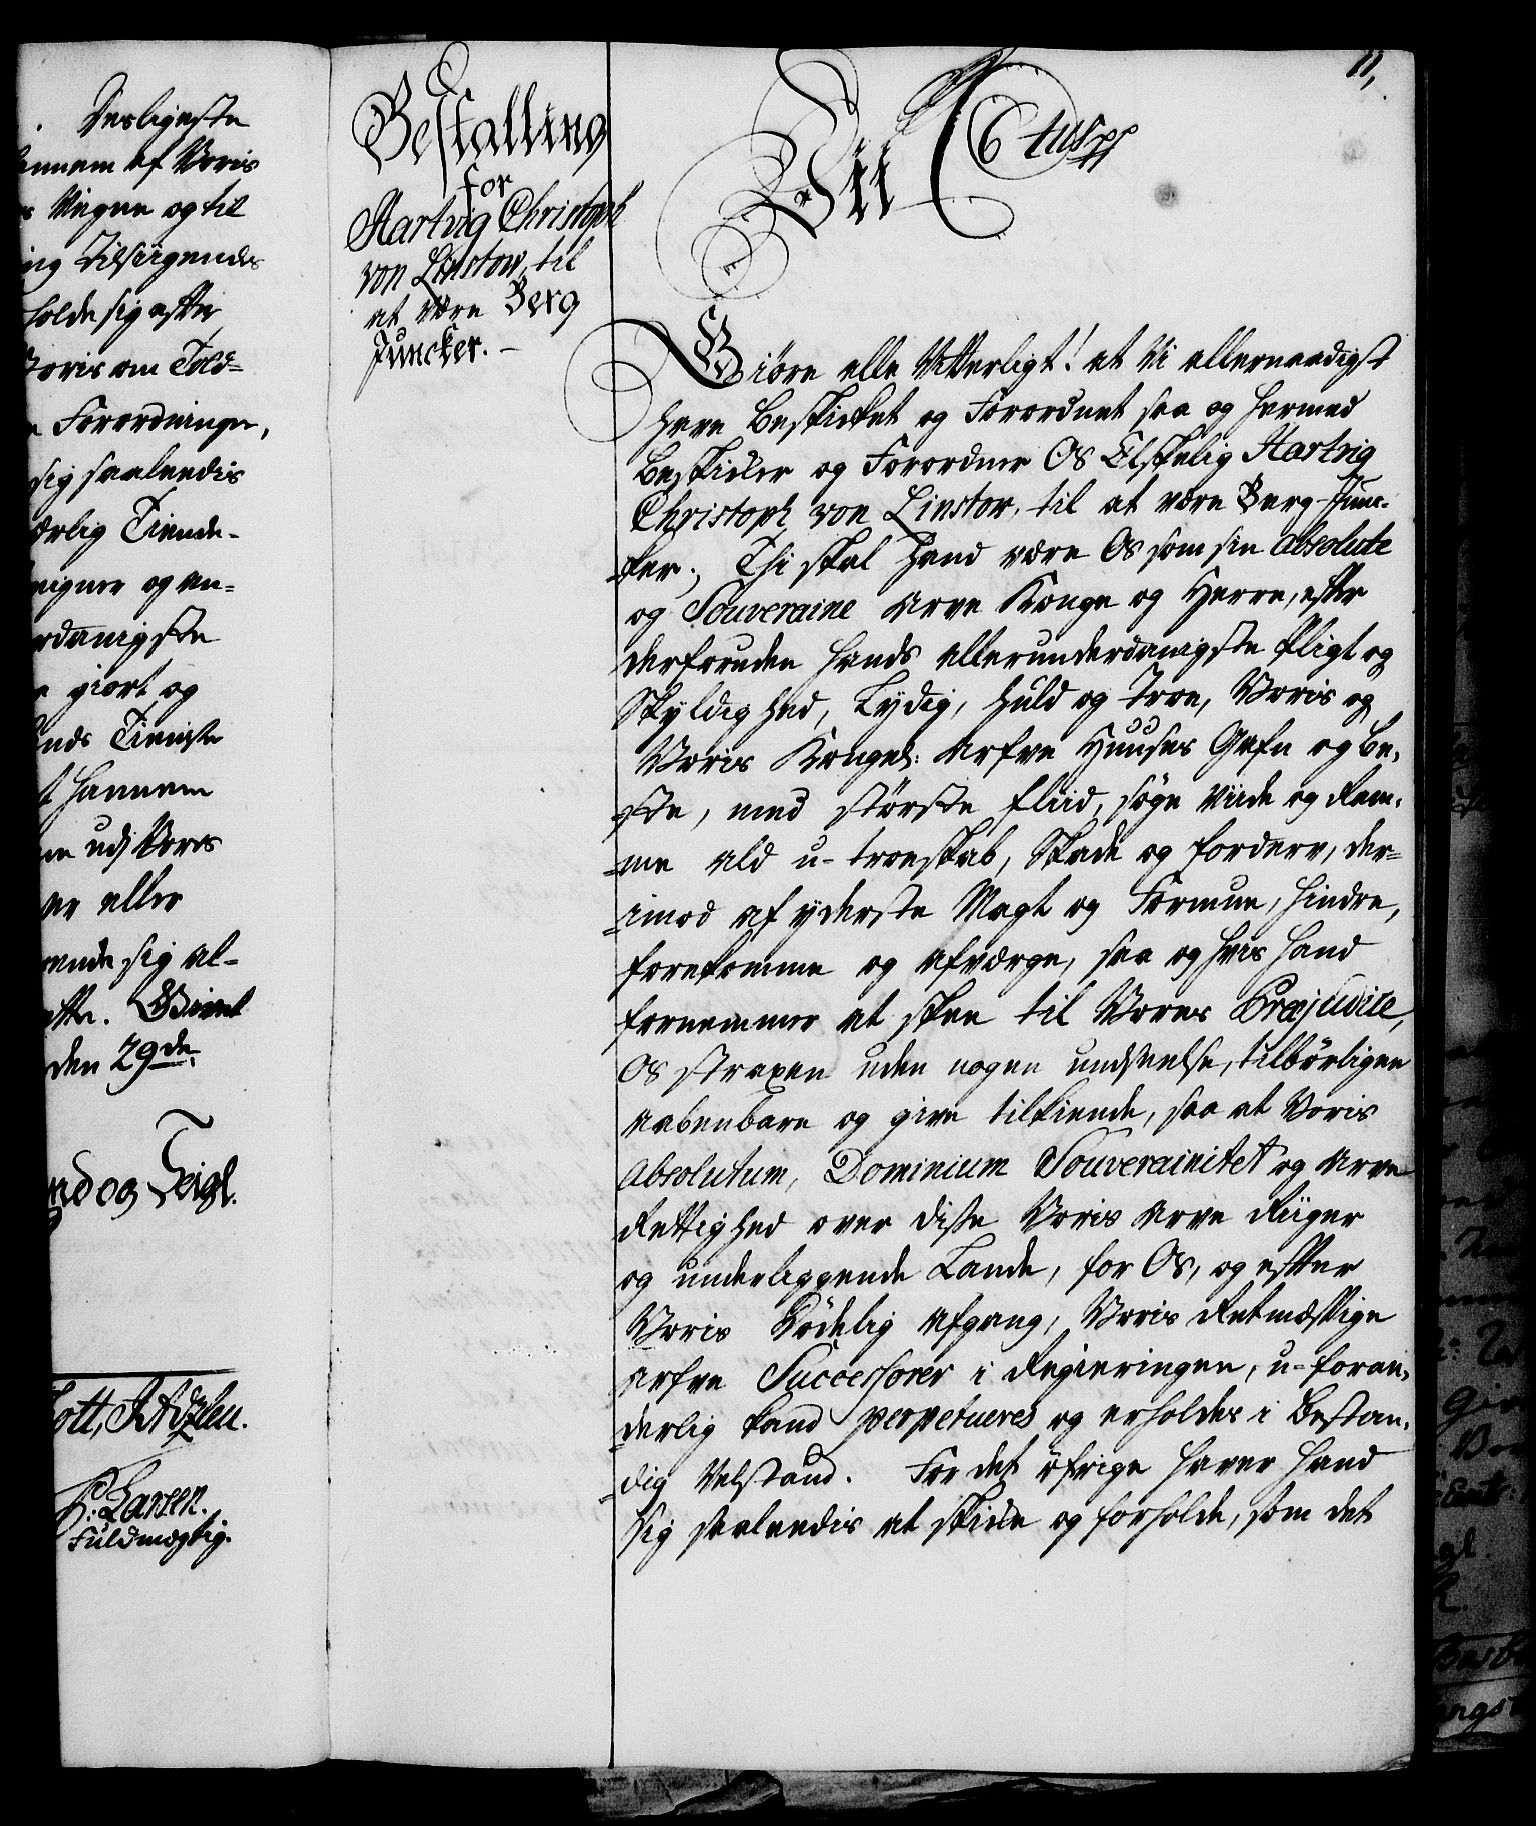 Desligeste
hannem af Voris
Vegne og til
Tilsiigendes
holde sig efter
Voris om Told=
Forordninger,
sig saaledis
ærlig Tiende-
eigner og an=
rdanigste
giort og
hands Tieniste
hannem
udj Vores
eller
vende sig al-
Givet
den 29de
nd og Seigl.
Holt, JAdzlew.
P: Larsen.
Fuldmægtig.
Bestalling
for
Hartvig Christoph
von Linstow, til
at være Berg
Juncker. –
11,
Vii C6tus pp
Giöre alle Vitterligt! at Vi allernaadigst
have Beskicket og Forordnet saa og hermed
Beskicker og Forordner Os Elskelig Hartvig
Christoph von Linstow, til at være Berg-Jun-
-ker; Thi skal hand være Os som sin Absolute
og Souveraine Arve Konge og Herre, efter
derforuden hands allerunderdanigste Pligt og
Skyldighed, Lydig, Huld og Troe, Voris og
Voris Kongel: Arfve Huuses Gafn og be-
-ste, med störste fliid, söge viide og Ram-
-me Ald u-troeskab, Skade og forderv, der=
-imod af yderste Magt og Formue, hindre,
forekomme og afværge, saa og hvis hand
fornemmer at skee til Vores Præjudice,
Os straxen uden nogen undseelse, tilbörligen
aabenbare og give tilkiende, saa at Voris
Absolutum, Dominium Souverainitet og Arve
Rettighed over disse Voris Arve Riiger
og underliggende Lande, for Os, og effter
Voris Dödelig Afgang, Voris Retmæssige
Arfve Successorer i Regieringen, u-foran-
-derlig kand perpetueres og erholdes i bestan-
-dig Velstand. For det öfrige haver hand
sig saaledis at skicke og forholde, som det